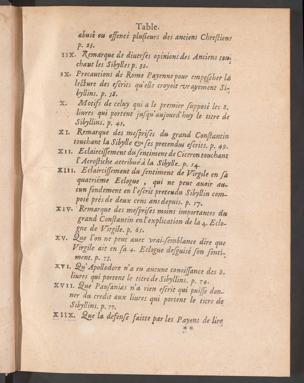 Table.
abusé ou offencé plusieurs des anciens Chrestiens
p. 25.
IIX. Remarque de diuerses opinions des Anciens tou-
chant les Sibylles p. 32.
IX. Precautions de Rome Payenne pour empescher la
lecture des escrits qu'elle croyoit vrayement Si-
byllins. p. 38.
X. Motifs de celuy qui a le premier supposé les 8.
liures qui portent jusqu'aujourd'huy le titre de
Sibyllins. p. 42.
XI. Remarque des mesprises du grand Constantin
touchant la Sibylle & ses pretendus escrits. p. 49.
XII. Eclaircissement du sentiment de Ciceron touchant
l'Acrostiche attribué à la Sibylle. p. 54.
XIII. Eclaircissement du sentiment de Virgile en sa
quatriéme Eclogue, qui ne peut auoir au-
cun fondement en l'escrit pretendu Sibyllin com-
posé prés de deux cens ans depuis. p. 57.
XIV. Remarque des mesprises moins importantes du
grand Constantin en l'explication de la 4. Eclo-
gue de Virgile. p. 65.
XV. Que l'on ne peut auec vrai-semblance dire que
Virgile ait en sa 4. Eclogue desguisé son senti-
ment. p. 72.
XVI. Qu'Apollodore n'a eu aucune conoissance des 8.
liures qui portent le titre de Sibyllins. p. 74.
XVII. Que Pausanias n'a rien escrit qui puisse don-
ner du credit aux liures qui portent le titre de
Sibyllins. p. 77.
XIIX. Que la defense faitte par les Payens de lire
**